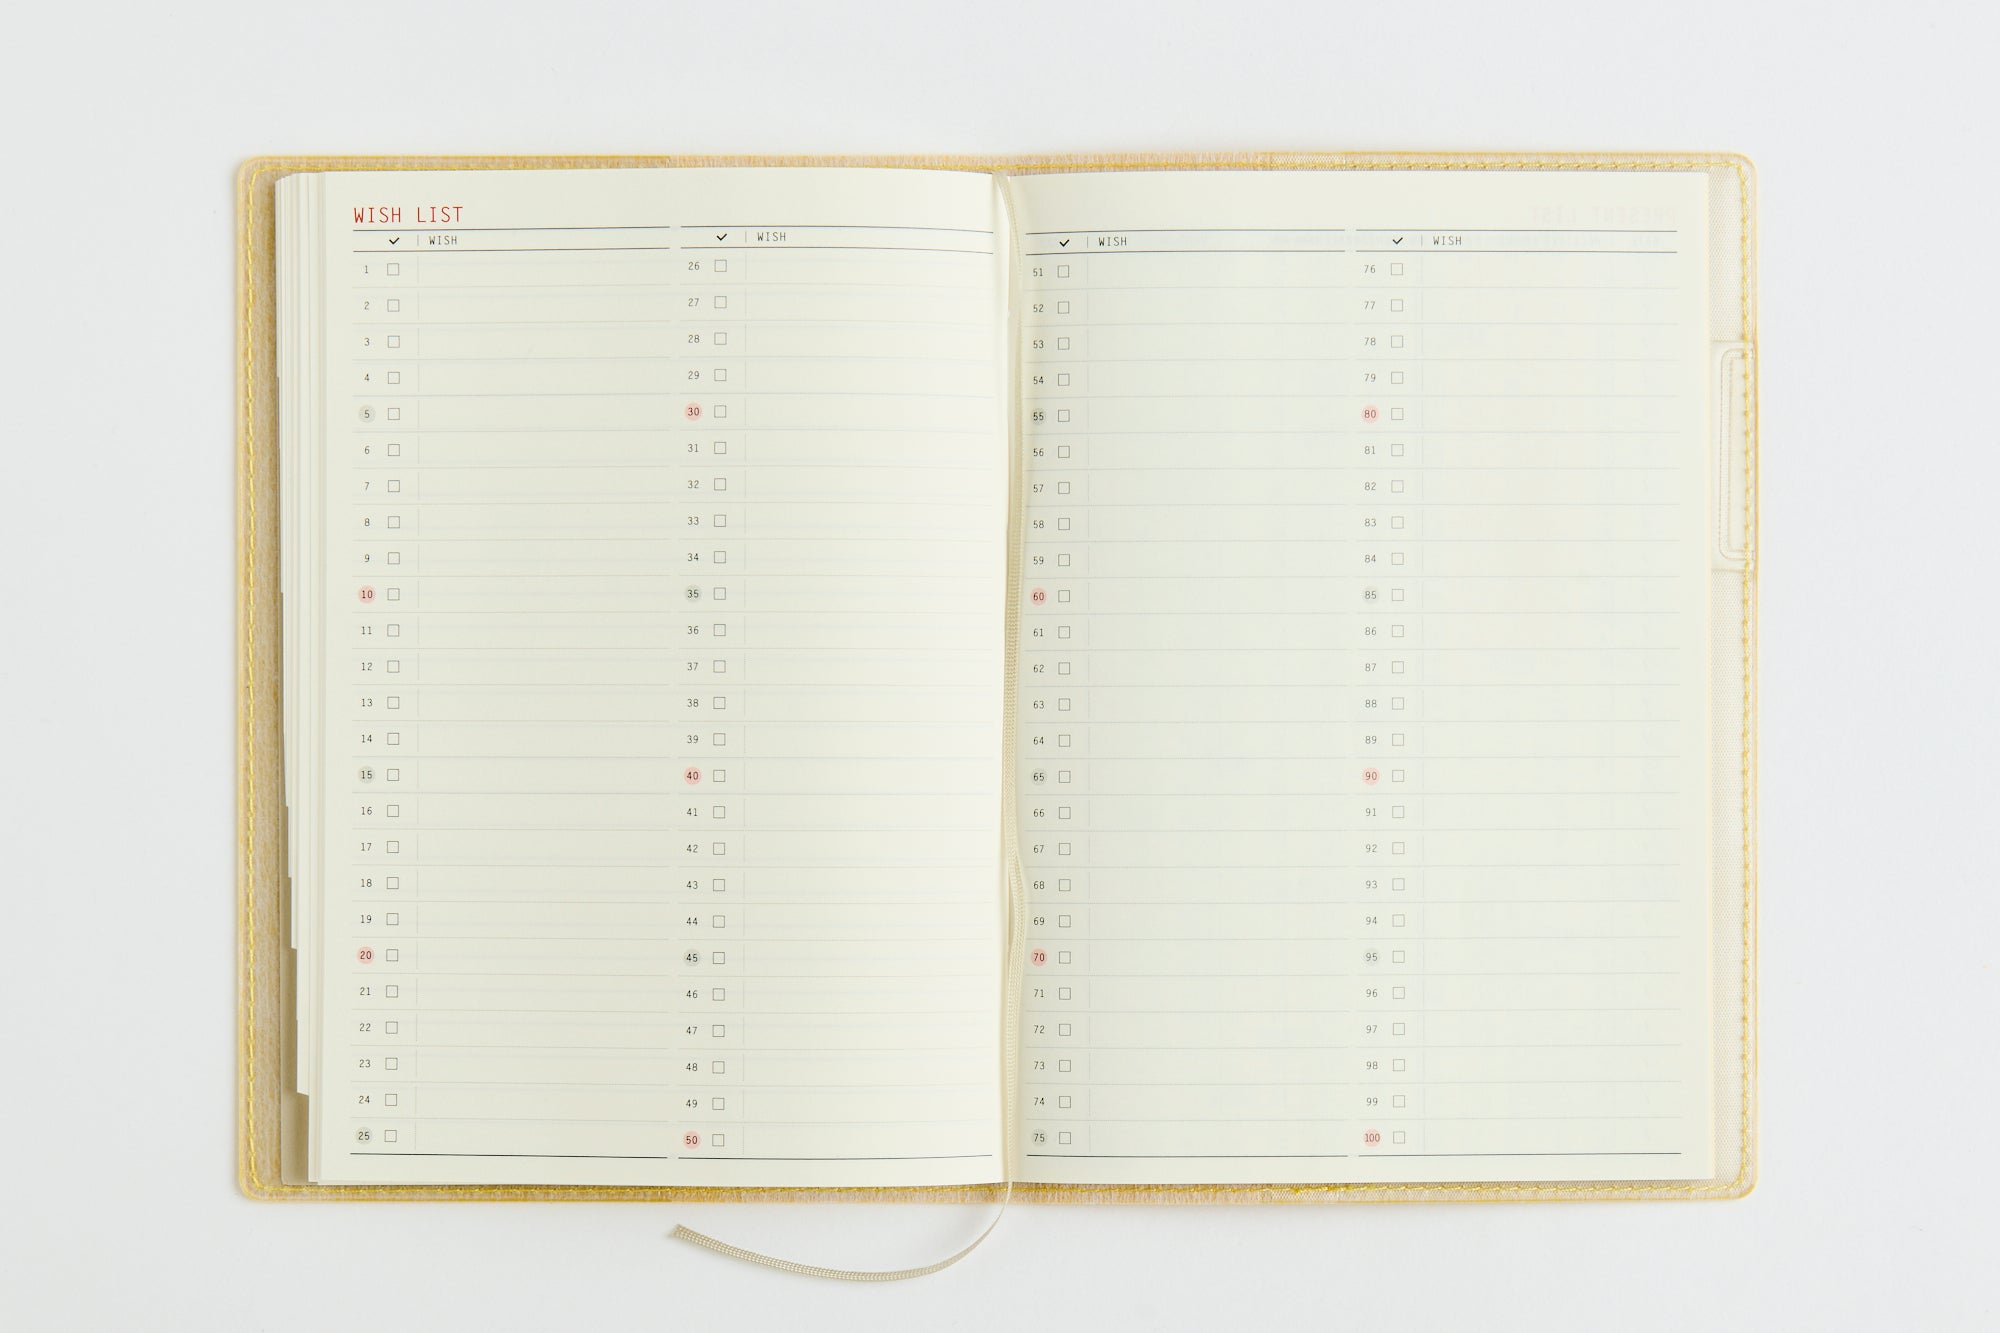 WISH LIST
✓ | WISH
1
2
3
4
5
6
7
8
9
10
11
12
13
14
15
16
17
18
19
20
21
22
23
24
25
✓ | WISH
26
27
28
29
30
31
32
33
34
35
36
37
38
39
40
41
42
43
44
45
46
47
48
49
50
✓ | WISH
51
52
53
54
55
56
57
58
59
60
61
62
63
64
65
66
67
68
69
70
71
72
73
74
75
PRESENT LIST
✓ | WISH
76
77
78
79
80
81
82
83
84
85
86
87
88
89
90
91
92
93
94
95
96
97
98
99
100